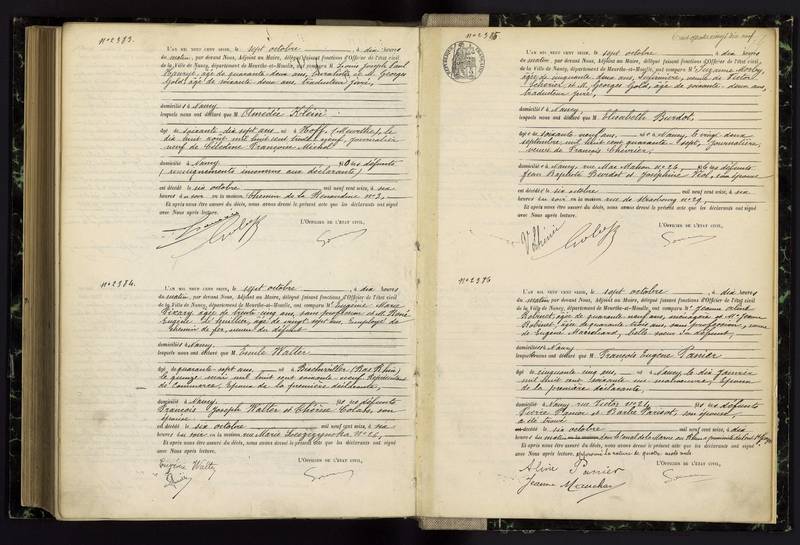 N° 2383.
L'AN MIL NEUF CENT SEIZE, le sept octobre, à dix heures
du matin, par devant Nous, Adjoint au Maire, délégué faisant fonctions d'Officier de l'état civil
de la Ville de Nancy, département de Meurthe-et-Moselle, ont comparu M. Joseph Paul
âgé de quarante deux ans, et M. Georges
Golds, âgé de soixante deux ans, traducteur juré,
domiciliés à Nancy
lesquels nous ont déclaré que M. Amédée Klein
âgé de soixante dix sept ans, né à Hoff, (Meurthe), le
dix huit août mil huit cent trente neuf, journalier
veuf de Célestine Françoise Michel
domicilié à Nancy, fils des défunts
(renseignements inconnus aux déclarants)
est décédé le six octobre mil neuf cent seize, à six
heures du soir en la maison, chemin de la N° 2,
Et après nous être assuré du décès, nous avons dressé le présent acte que les déclarants ont signé
avec Nous après lecture.
L'OFFICIER DE L'ÉTAT CIVIL,
N° 2384.
L'AN MIL NEUF CENT SEIZE, le sept octobre, à dix heures
du matin, par devant Nous, Adjoint au Maire, délégué faisant fonctions d'Officier de l'état civil
de la Ville de Nancy, département de Meurthe-et-Moselle, ont comparu Me Eugénie Marie
âgée de trente cinq ans, sans profession et M. René
Eugène âgé de vingt sept ans, Employé de
chemin de fer, neveu du défunt
domiciliés à Nancy
lesquels nous ont déclaré que M. Emile Walter
âgé de quarante sept ans, né à Bischwiller (Bas Rhin)
le quinze mai mil huit cent soixante neuf, Représentant
de Commerce, Epoux de la première déclarante,
domicilié à Nancy, fils des défunts
François Joseph Walter et Thérèse Colabs, son
épouse
est décédé le six octobre mil neuf cent seize, à six
heures du soir en la maison, rue Marie Leszczynska N° 26,
Et après nous être assuré du décès, nous avons dressé le présent acte que les déclarants ont signé
avec Nous après lecture.
L'OFFICIER DE L'ÉTAT CIVIL,
Eugénie Walter
N° 2385
L'AN MIL NEUF CENT SEIZE, le sept octobre, à dix heures
du matin, par devant Nous, Adjoint au Maire, délégué faisant fonctions d'Officier de l'état civil
de la Ville de Nancy, département de Meurthe-et-Moselle, ont comparu Me Suzanne
âgée de cinquante deux ans, Infirmière, veuve de Victor
Chevrier, et M. Georges Golds, âgé de soixante deux ans,
traducteur juré,
domiciliés à Nancy
lesquels nous ont déclaré que M. Elisabeth Burdot
âgée de soixante neuf ans, née à Nancy, le vingt deux
septembre mil huit cent quarante sept, journalière,
veuve de François Chevrier,
domiciliée à Nancy, rue Mac Mahon N° 26, fille des défunts
Jean Baptiste Burdot et Joséphine son épouse
est décédée le six octobre mil neuf cent seize, à six
heures du soir en la maison, rue de Strasbourg N° 29,
Et après nous être assuré du décès, nous avons dressé le présent acte que les déclarants ont signé
avec Nous après lecture.
L'OFFICIER DE L'ÉTAT CIVIL,
N° 2386
L'AN MIL NEUF CENT SEIZE, le sept octobre, à dix heures
du matin, par devant Nous, Adjoint au Maire, délégué faisant fonctions d'Officier de l'état civil
de la Ville de Nancy, département de Meurthe-et-Moselle, ont comparu Me Jeanne
Robinet, âgée de quarante neuf ans, ménagère et Me Jeanne
Robinet, âgée de quarante trois ans, sans profession, veuve
de Eugène belle soeur du défunt,
domiciliées à Nancy
lesquelles nous ont déclaré que M. François Eugène Panier
âgé de cinquante cinq ans, né à Nancy, le dix janvier
mil huit cent soixante un, Epoux
de la première déclarante,
domicilié à Nancy, rue Victor N° 24, fils des défunts
Pierre Panier et Barbe Parisot, son épouse
a été trouvé
le six octobre mil neuf cent seize, à dix
heures du matin dans le canal de la Marne au Rhin
Et après nous être assuré du décès, nous avons dressé le présent acte que les déclarants ont signé
avec Nous après lecture,
L'OFFICIER DE L'ÉTAT CIVIL,
Aline Panier
Jeanne